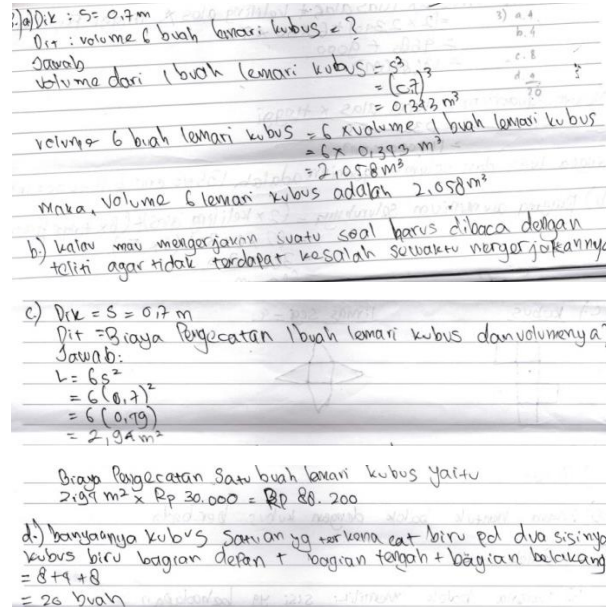 3.)a) Dik : S = 0,7 m
Dit : volume 6 buah lemari kubus = ?
Jawab
volume dari 1 buah lemari kubus = s³
= (0,7)³
= 0,343 m³
volume 6 buah lemari kubus = 6 x volume 1 buah lemari kubus
= 6 x 0,343 m³
= 2,058 m³
maka, volume 6 lemari kubus adalah 2,058 m³
b.) kalau mau mengerjakan suatu soal harus dibaca dengan
teliti agar tidak terdapat kesalah sewaktu
c) Dik = S = 0,7 m
Dit = Biaya Pengecatan 1 buah lemari kubus dan volumenya?
Jawab:
L = 6s²
= 6 (0,7)²
= 6 (0,49)
= 2,94 m²
Biaya Pengecatan Satu buah lemari kubus yaitu
2,94 m² x Rp 30.000 = Rp 88.200
d.) banyaknya kubus satuan yg terkena cat biru pd dua sisinya
kubus biru bagian depan + bagian tengah + bagian belakang
= 8+4+8
= 20 buah
3) a. 4
b. 4
c. 8
d. 4
20